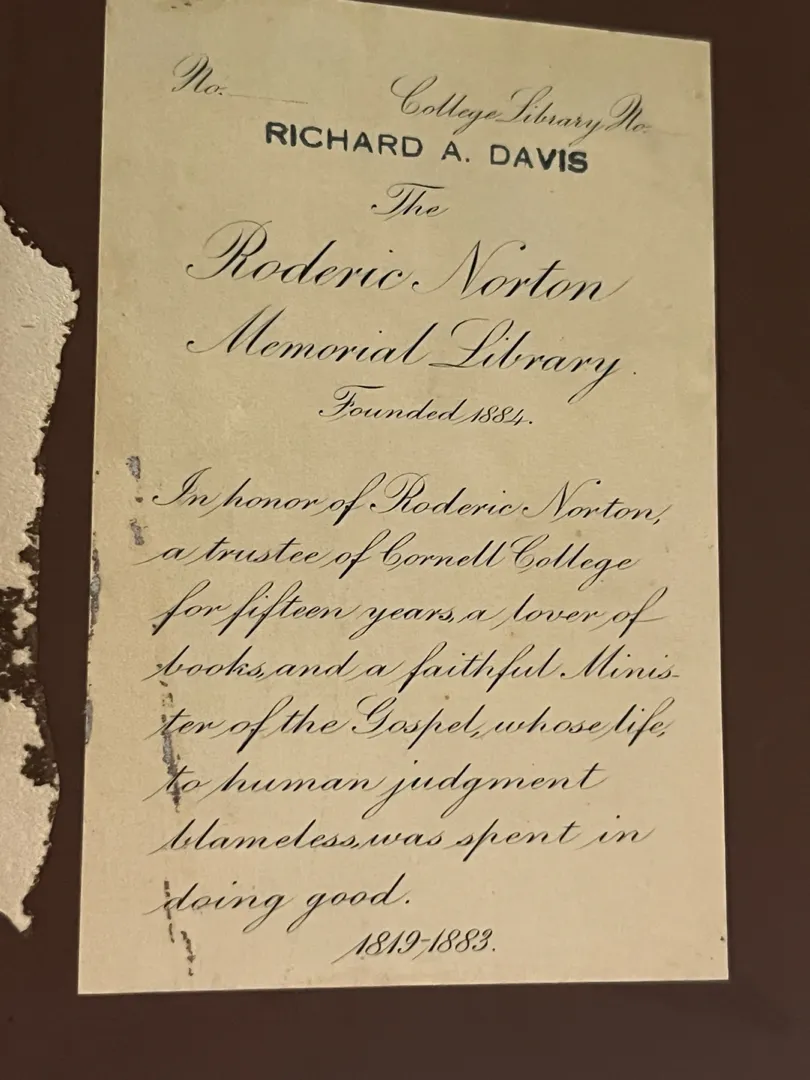 No. College Library No.
RICHARD A. DAVIS
The
Roderic Norton
Memorial Library.
Founded 1884.
In honor of Roderic Norton,
a trustee of Cornell College
for fifteen years, a lover of
books, and a faithful Minis-
ter of the Gospel, whose life,
to human judgment
blameless, was spent in
doing good.
1819-1883.